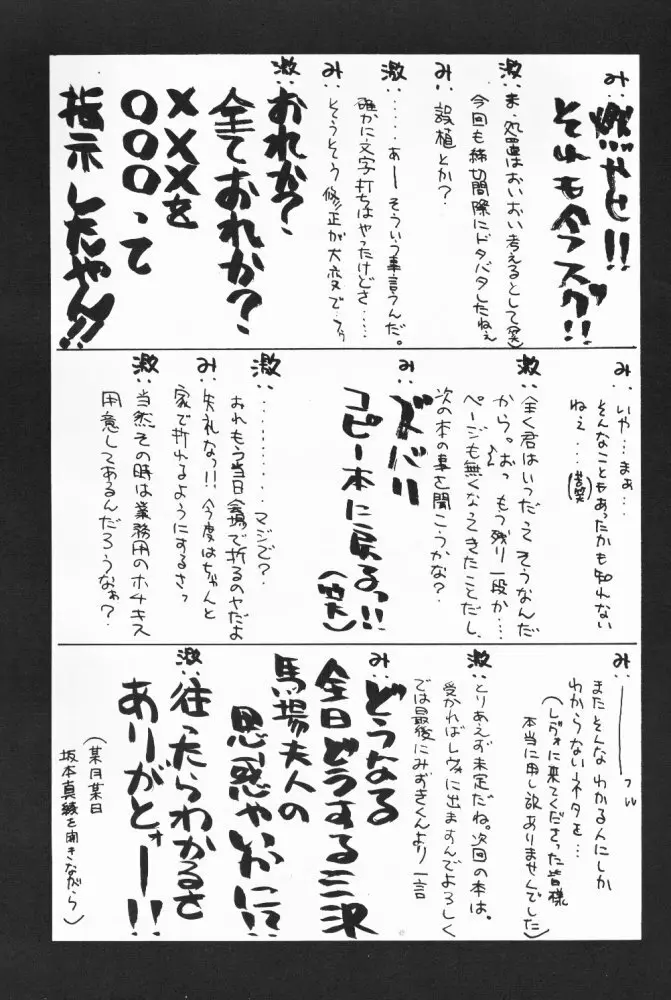 み:燃やせ!!
それも今スグ!!
激:ま、処置はおいおい考えるとして(笑)
今回も締切間際にドタバタしたねぇ
み:誤植とか?
激:……あーそういう事言うんだ。
確かに文字打ちはやったけどさ……
み:そうそう修正が大変で…
激:おれか?
全ておれか?
×××を
○○○って
指示したやん!!
み:いや…まぁ…
そんなこともあったかも知れない
ねぇ…(苦笑)
激:全く君はいつだってそうなんだ
から。おっもう残り一段か……
ページも無くなってきたことだし、
次の本の事を聞こうかな?
み:ズバリ
コピー本に戻るっ!!
激:…………マジで?
おれもう当日会場で折るのヤだよ
み:失礼なっ!!今度はちゃんと
家で折れるようにするさっ
激:当然その時は業務用のホチキス
用意してあるんだろうなぁ?
み:――
またそんなわかる人にしか
わからないネタを…
(レヴォに来てくださった皆様
本当に申し訳ありませんでした)
激:とりあえず未定だね。次回の本は。
受かればレヴォに出ますんでよろしく
では最後にみずきくんより一言
み:どうなる
全日どうする三沢
馬場夫人の
思惑やいかに!?
激:往ったらわかるさ
ありがとォー!!
(某月某日
坂本真綾を聞きながら)